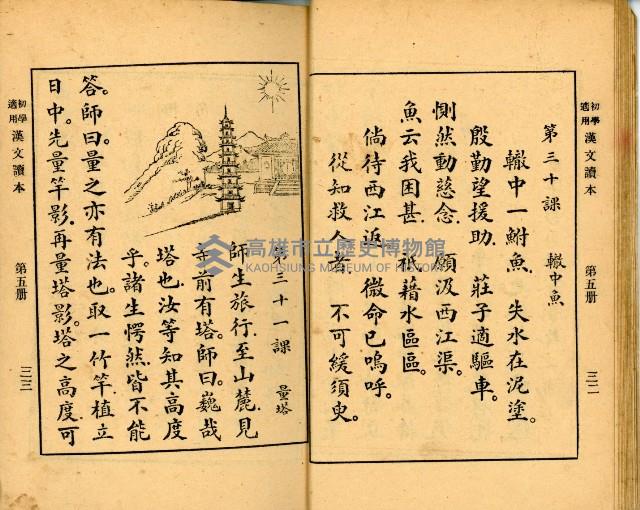 初學適用 漢文讀本 第五册 三二
第三十課 轍中魚
轍中一鮒魚。失水在泥塗。
殷勤望援助。莊子適驅車。
惻然動慈念。願汲西江渠。
魚云我困甚。祇藉水區區。
倘待西江返。微命已嗚呼。
從知救人者。不可緩須臾。
第三十一課 量塔
師生旅行。至山麓。見
寺前有塔。師曰。巍哉
塔也。汝等知其高度
乎。諸生愕然。皆不能
答。師曰。量之亦有法也。取一竹竿。植立
日中。先量竿影。再量塔影。塔之高度。可
初學適用 漢文讀本 第五册 三三
高雄市立歷史博物館
KAOHSIUNG MUSEUM OF HISTORY